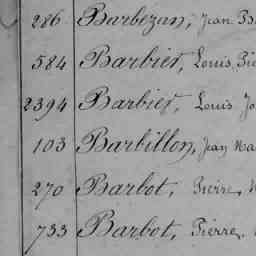 286 Barbezan, Jean
584 Barbier, Louis,
2394 Barbier, Louis
103 Barbillon, Jean
270 Barbot, Pierre,
733 Barbot, Pierre.